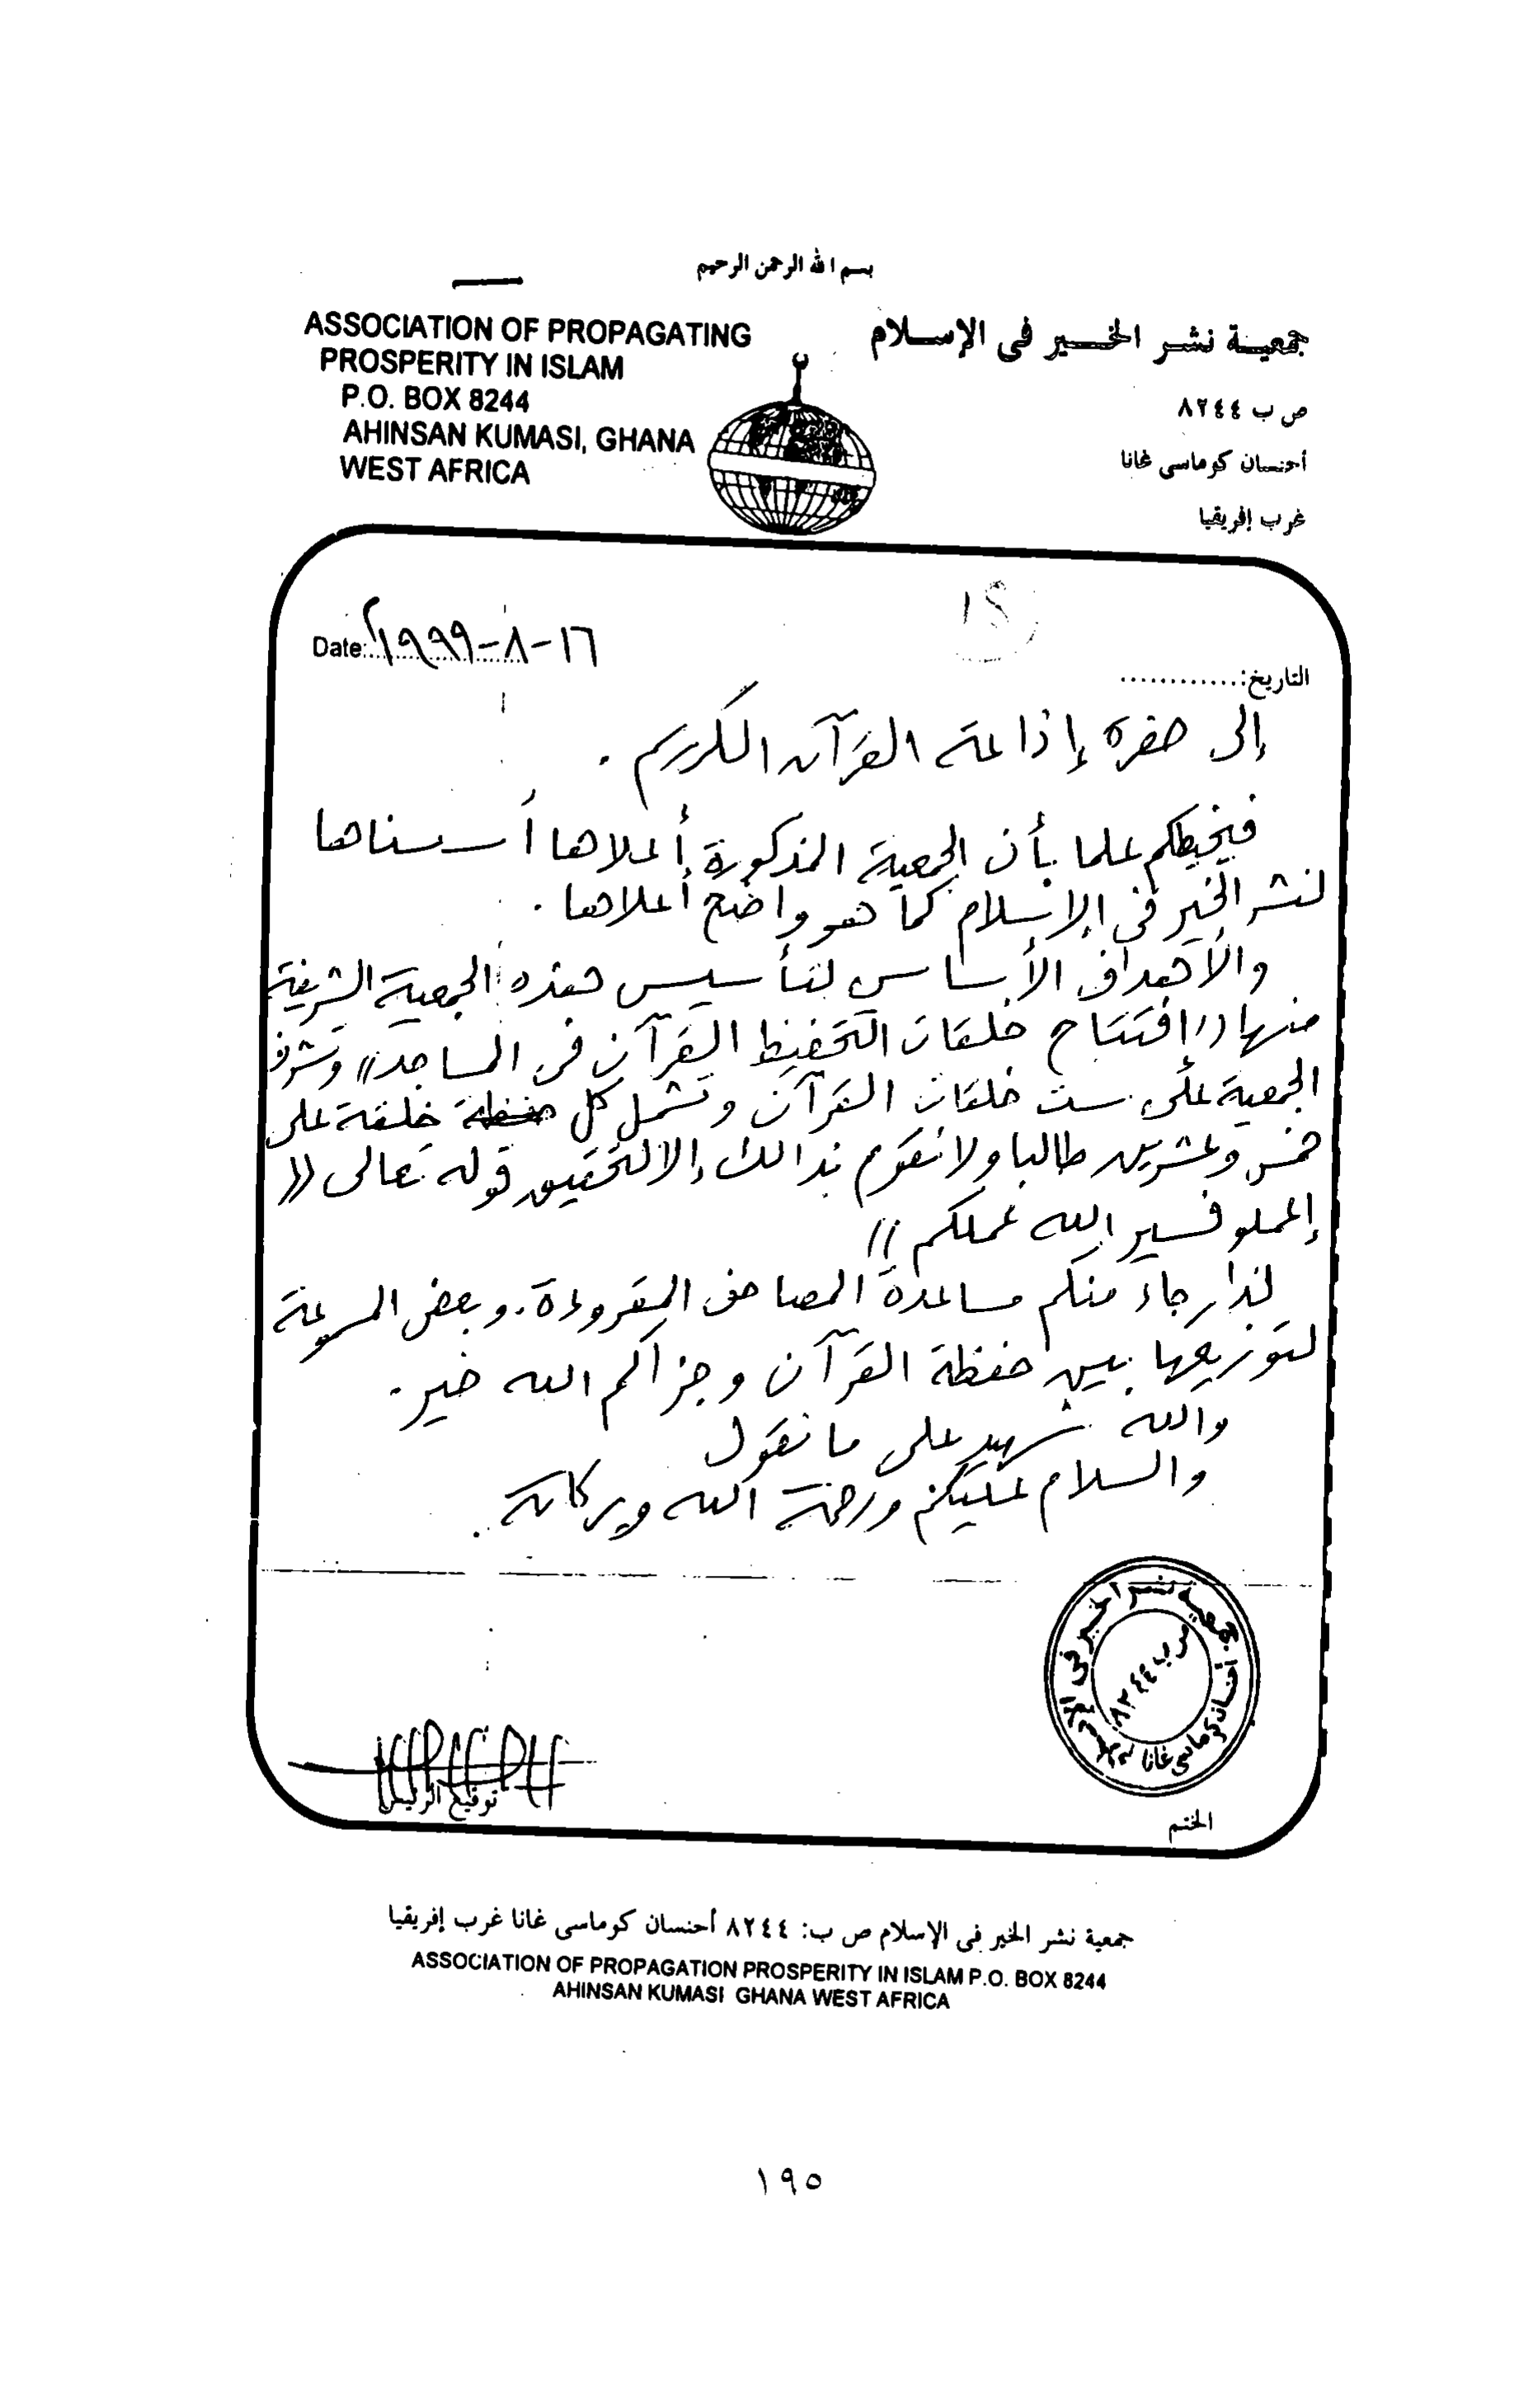 بسم الله الرحمن الرحيم
ASSOCIATION OF PROPAGATING
PROSPERITY IN ISLAM
P.O. BOX 8244
AHINSAN KUMASI, GHANA
WEST AFRICA
جمعية نشر الخير في الإسلام
ص ب ٨٢٤٤
أحنسان كوماسي غانا
غرب إفريقيا
Date: ١٦-٨-١٩٩٩م
التاريخ:............
إلى حضرة إذاعة القرآن الكريم .
فنحيطكم علما بأن الجمعية المذكورة أعلاها أسسناها
لنشر الخير في الإسلام كما هو واضح أعلاها .
والأهداف الأساس لتأسيس هذه الجمعية الشريفة
منها ((إفتتاح حلقات التحفيظ القرآن في المساجد)) وتشرف
الجمعية على ست حلقات القرآن وتشمل كل حلقة على
خمس وعشرين طالبا ولا نقوم بذالك إلا لتحقيق قوله تعالى ((
إعملو فسير الله عملكم ))
لذا رجاء منكم مساعدة المصاحف المقروءة . وبعض المسرعة
لتوزيعها بين حفظة القرآن وجزاكم الله خير .
والله شهيد على ما نقول
والسلام عليكم ورحمة الله وبركاته .
جمعية نشر الخير في الإسلام
ص ب ٨٢٤٤
أحنسان كوماسي غانا
توقيع الرئيس
الختم
جمعية نشر الخير في الإسلام ص ب: ٨٢٤٤ أحنسان كوماسي غانا غرب إفريقيا
ASSOCIATION OF PROPAGATION PROSPERITY IN ISLAM P.O. BOX 8244
AHINSAN KUMASI GHANA WEST AFRICA
١٩٥